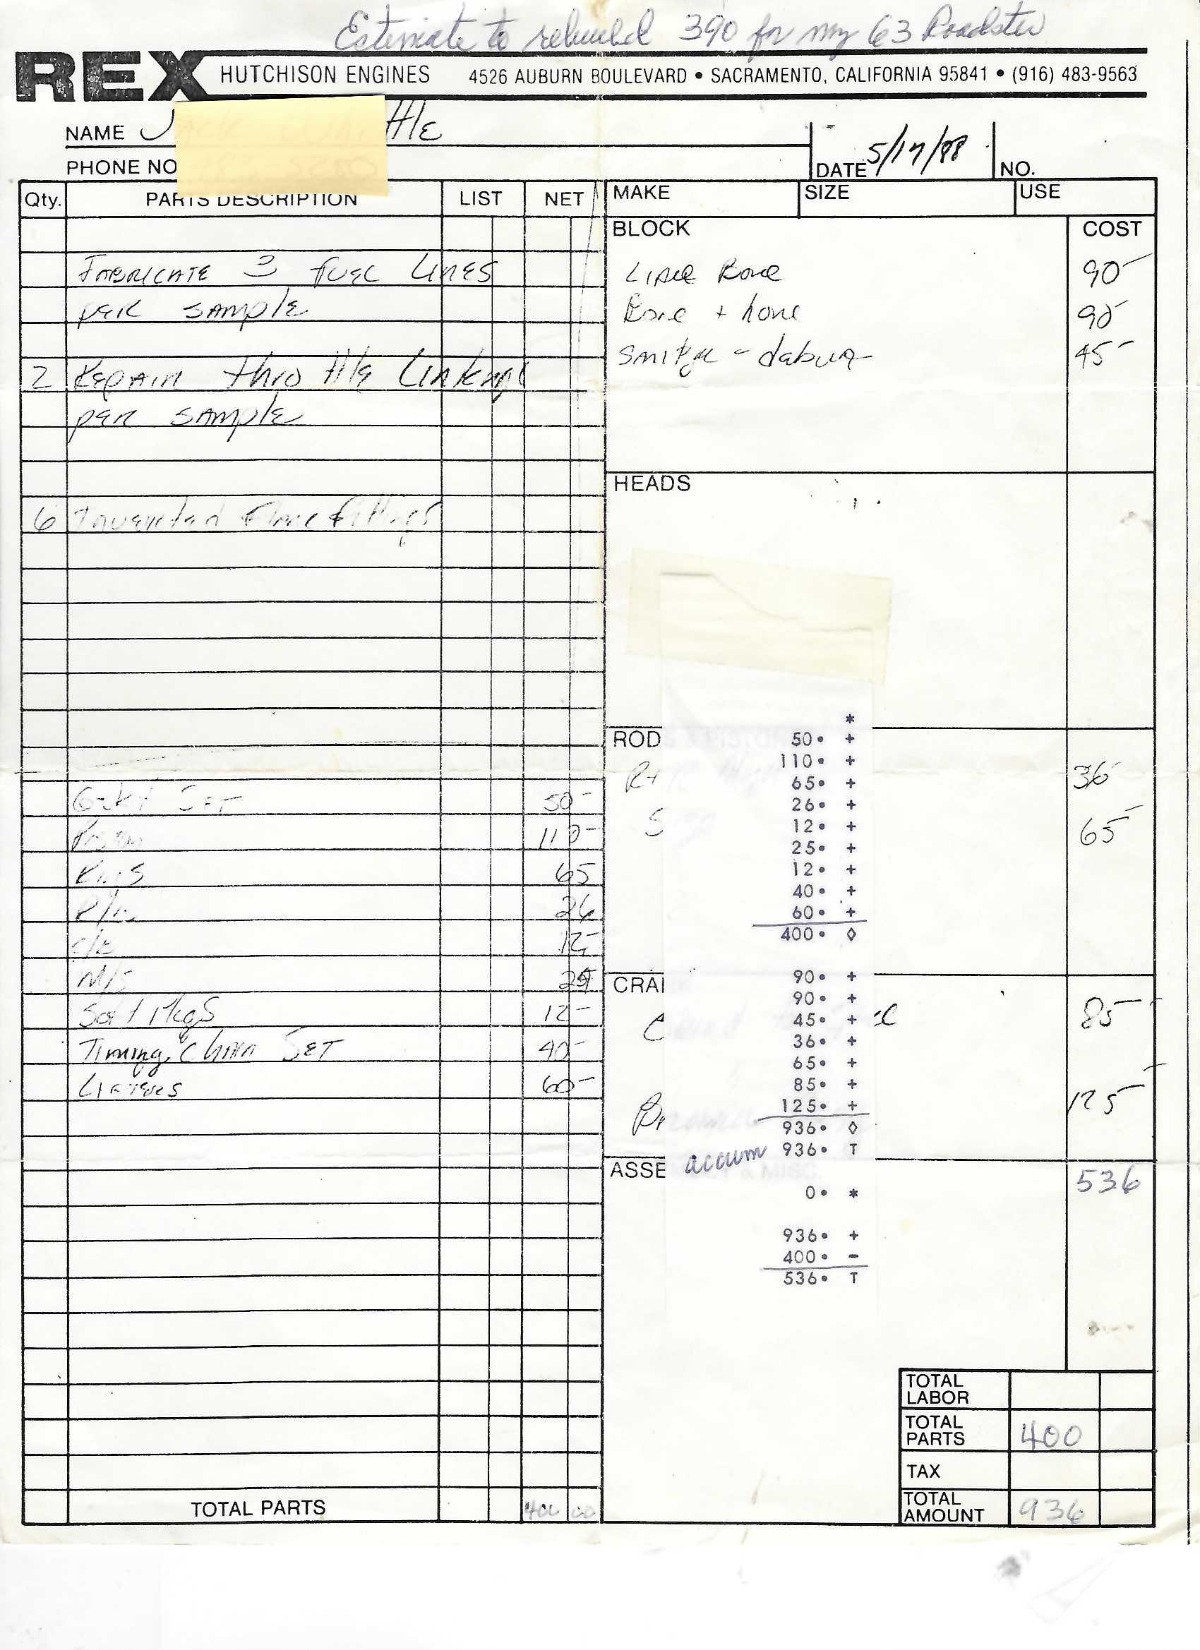 Estimate to rebuild 390 for my 63 Roadster
REX HUTCHISON ENGINES 4526 AUBURN BOULEVARD • SACRAMENTO, CALIFORNIA 95841 • (916) 483-9563
NAME
PHONE NO
DATE 5/17/88 NO.
Qty. PARTS DESCRIPTION LIST NET
FABRICATE 3 fuel LINES
per SAMPLE
2 REPAIR throttle Linkage
per SAMPLE
6 Inverted Flare fittings
Gskt SET 50-
Piston 110-
Rings 65
P/B 26
C/B 12-
M/S 25
Soft Plugs 12-
Timing Chain SET 40-
LIFTERS 60-
TOTAL PARTS 400 00
MAKE SIZE USE
BLOCK COST
Line Bore 90-
Bore + hone 90-
45-
HEADS
ROD
R+ 36
S 65
CRA
C 85-
125-
ASSE 536
*
50• +
110• +
65• +
26• +
12• +
25• +
12• +
40• +
60• +
400• ◊
90• +
90• +
45• +
36• +
65• +
85• +
125• +
936• ◊
accum 936• T
0• *
936• +
400• −
536• T
TOTAL LABOR
TOTAL PARTS 400
TAX
TOTAL AMOUNT 936